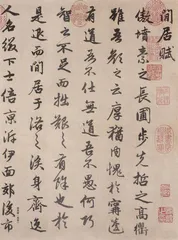 閒居賦
傲墳素之長圃步先哲之高衢
雖吾顏之云厚猶內愧於寗蘧
有道吾不仕無道吾不愚何巧
智之不足而拙艱之有餘也於
是退而閒居于洛之涘身齊逸
人名綴下士倍京泝伊面郊後市